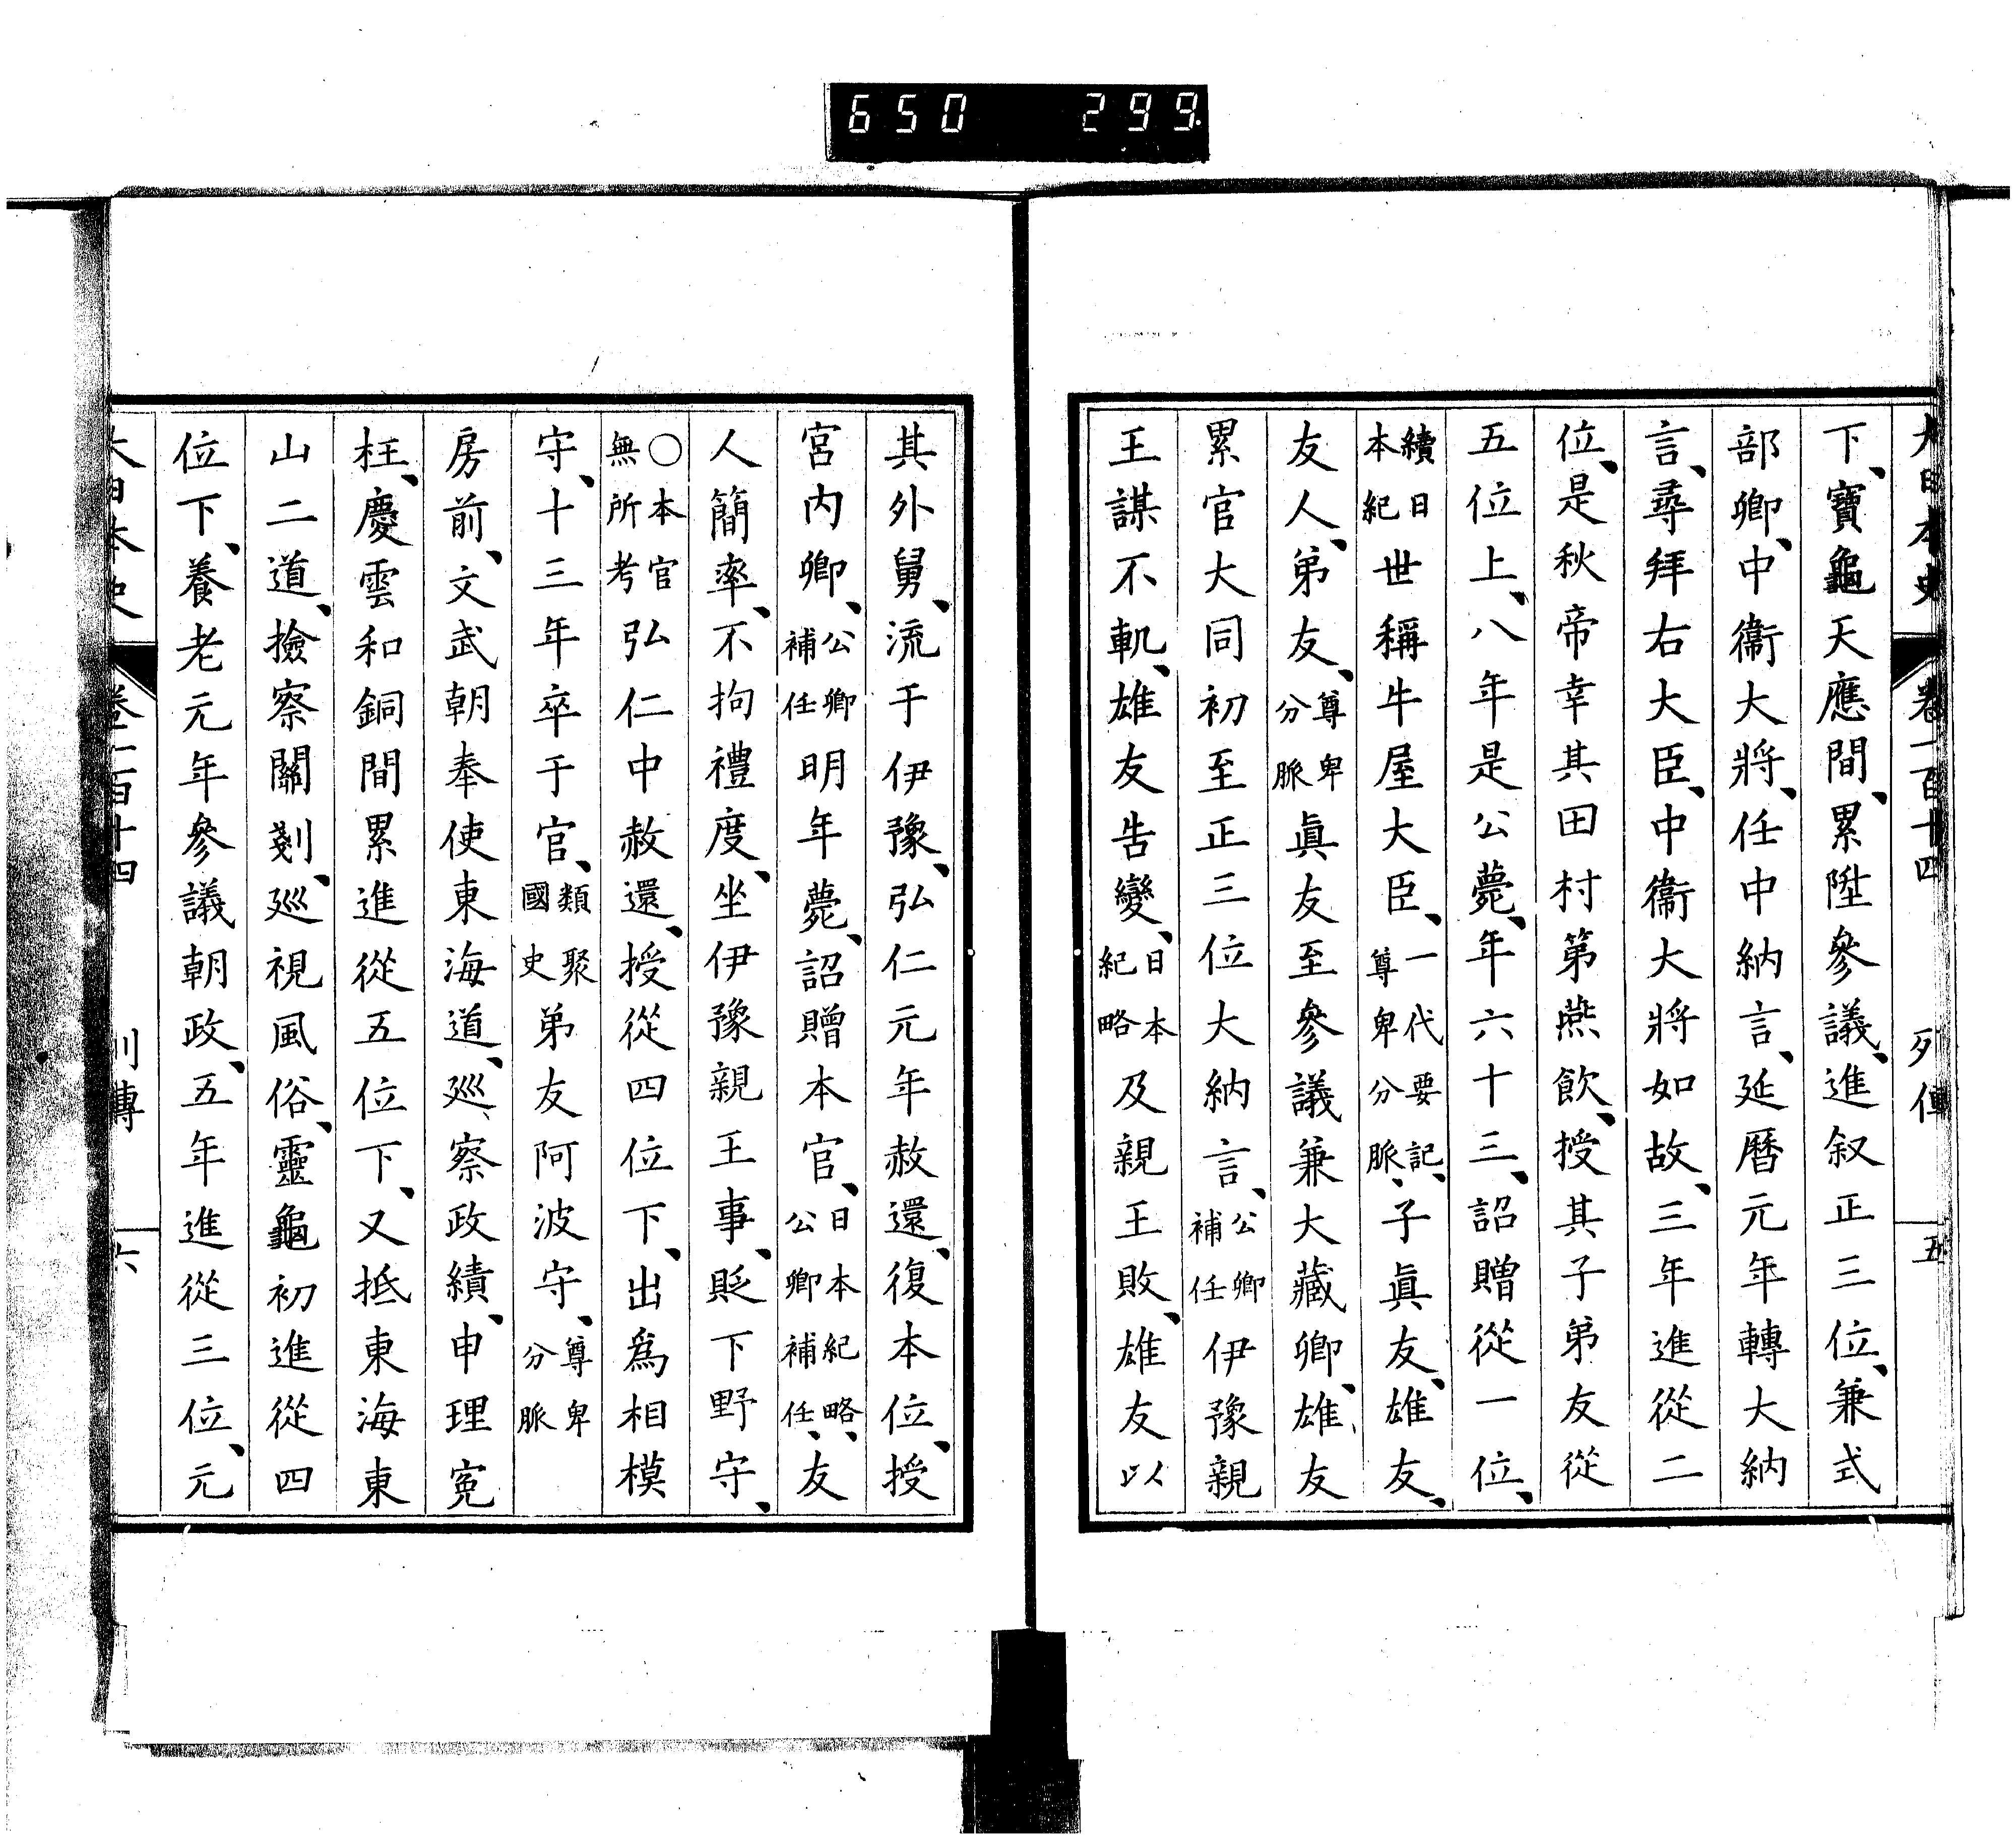 650 299
大日本史 卷一百十四 列傳 五
下、寶龜天應間、累陞參議、進叙正三位、兼式
部卿、中衞大將、任中納言、延曆元年轉大納
言、尋拜右大臣、中衞大將如故、三年進從二
位、是秋帝幸其田村第燕飮、授其子弟友從
五位上、八年是公薨、年六十三、詔贈從一位、
續日本紀世稱牛屋大臣、一代要記、尊卑分脈、子眞友、雄友、
友人、弟友、尊卑分脈眞友至參議兼大藏卿、雄友
累官大同初至正三位大納言、公卿補任伊豫親
王謀不軌、雄友告變、日本紀略及親王敗、雄友以
其外舅、流于伊豫、弘仁元年赦還、復本位、授
宮內卿、公卿補任明年薨、詔贈本官、日本紀略、公卿補任、友
人簡率、不拘禮度、坐伊豫親王事、貶下野守、
○本官無所考弘仁中赦還、授從四位下、出爲相模
守、十三年卒于官、類聚國史弟友阿波守、尊卑分脈
房前、文武朝奉使東海道、巡察政績、申理冤
枉、慶雲和銅間累進從五位下、又抵東海東
山二道、撿察關剗、巡視風俗、靈龜初進從四
位下、養老元年參議朝政、五年進從三位、元
大日本史 卷一百十四 列傳 六